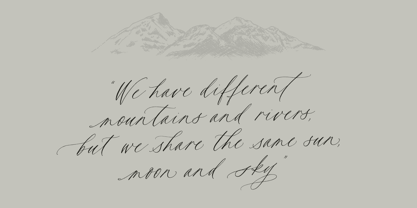 "We have different
mountains and rivers,
but we share the same sun,
moon and sky"